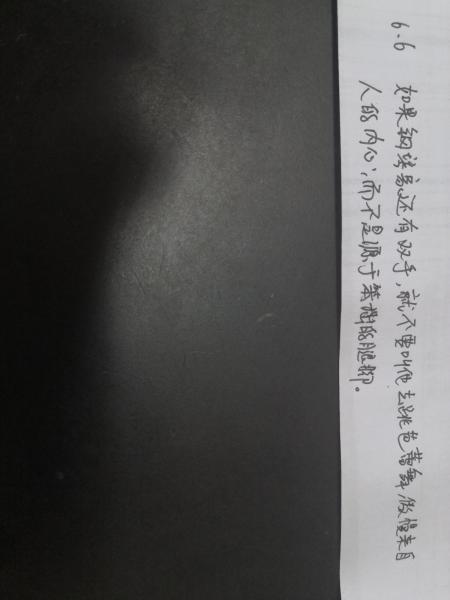 6.6 如果钢琴家还有双手,就不要叫他去跳芭蕾舞,傲慢来自
人的内心,而不是源于笨拙的腿脚。